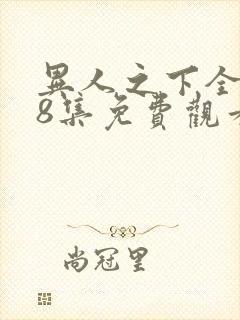 異人之下全
8集免費觀
尚冠里